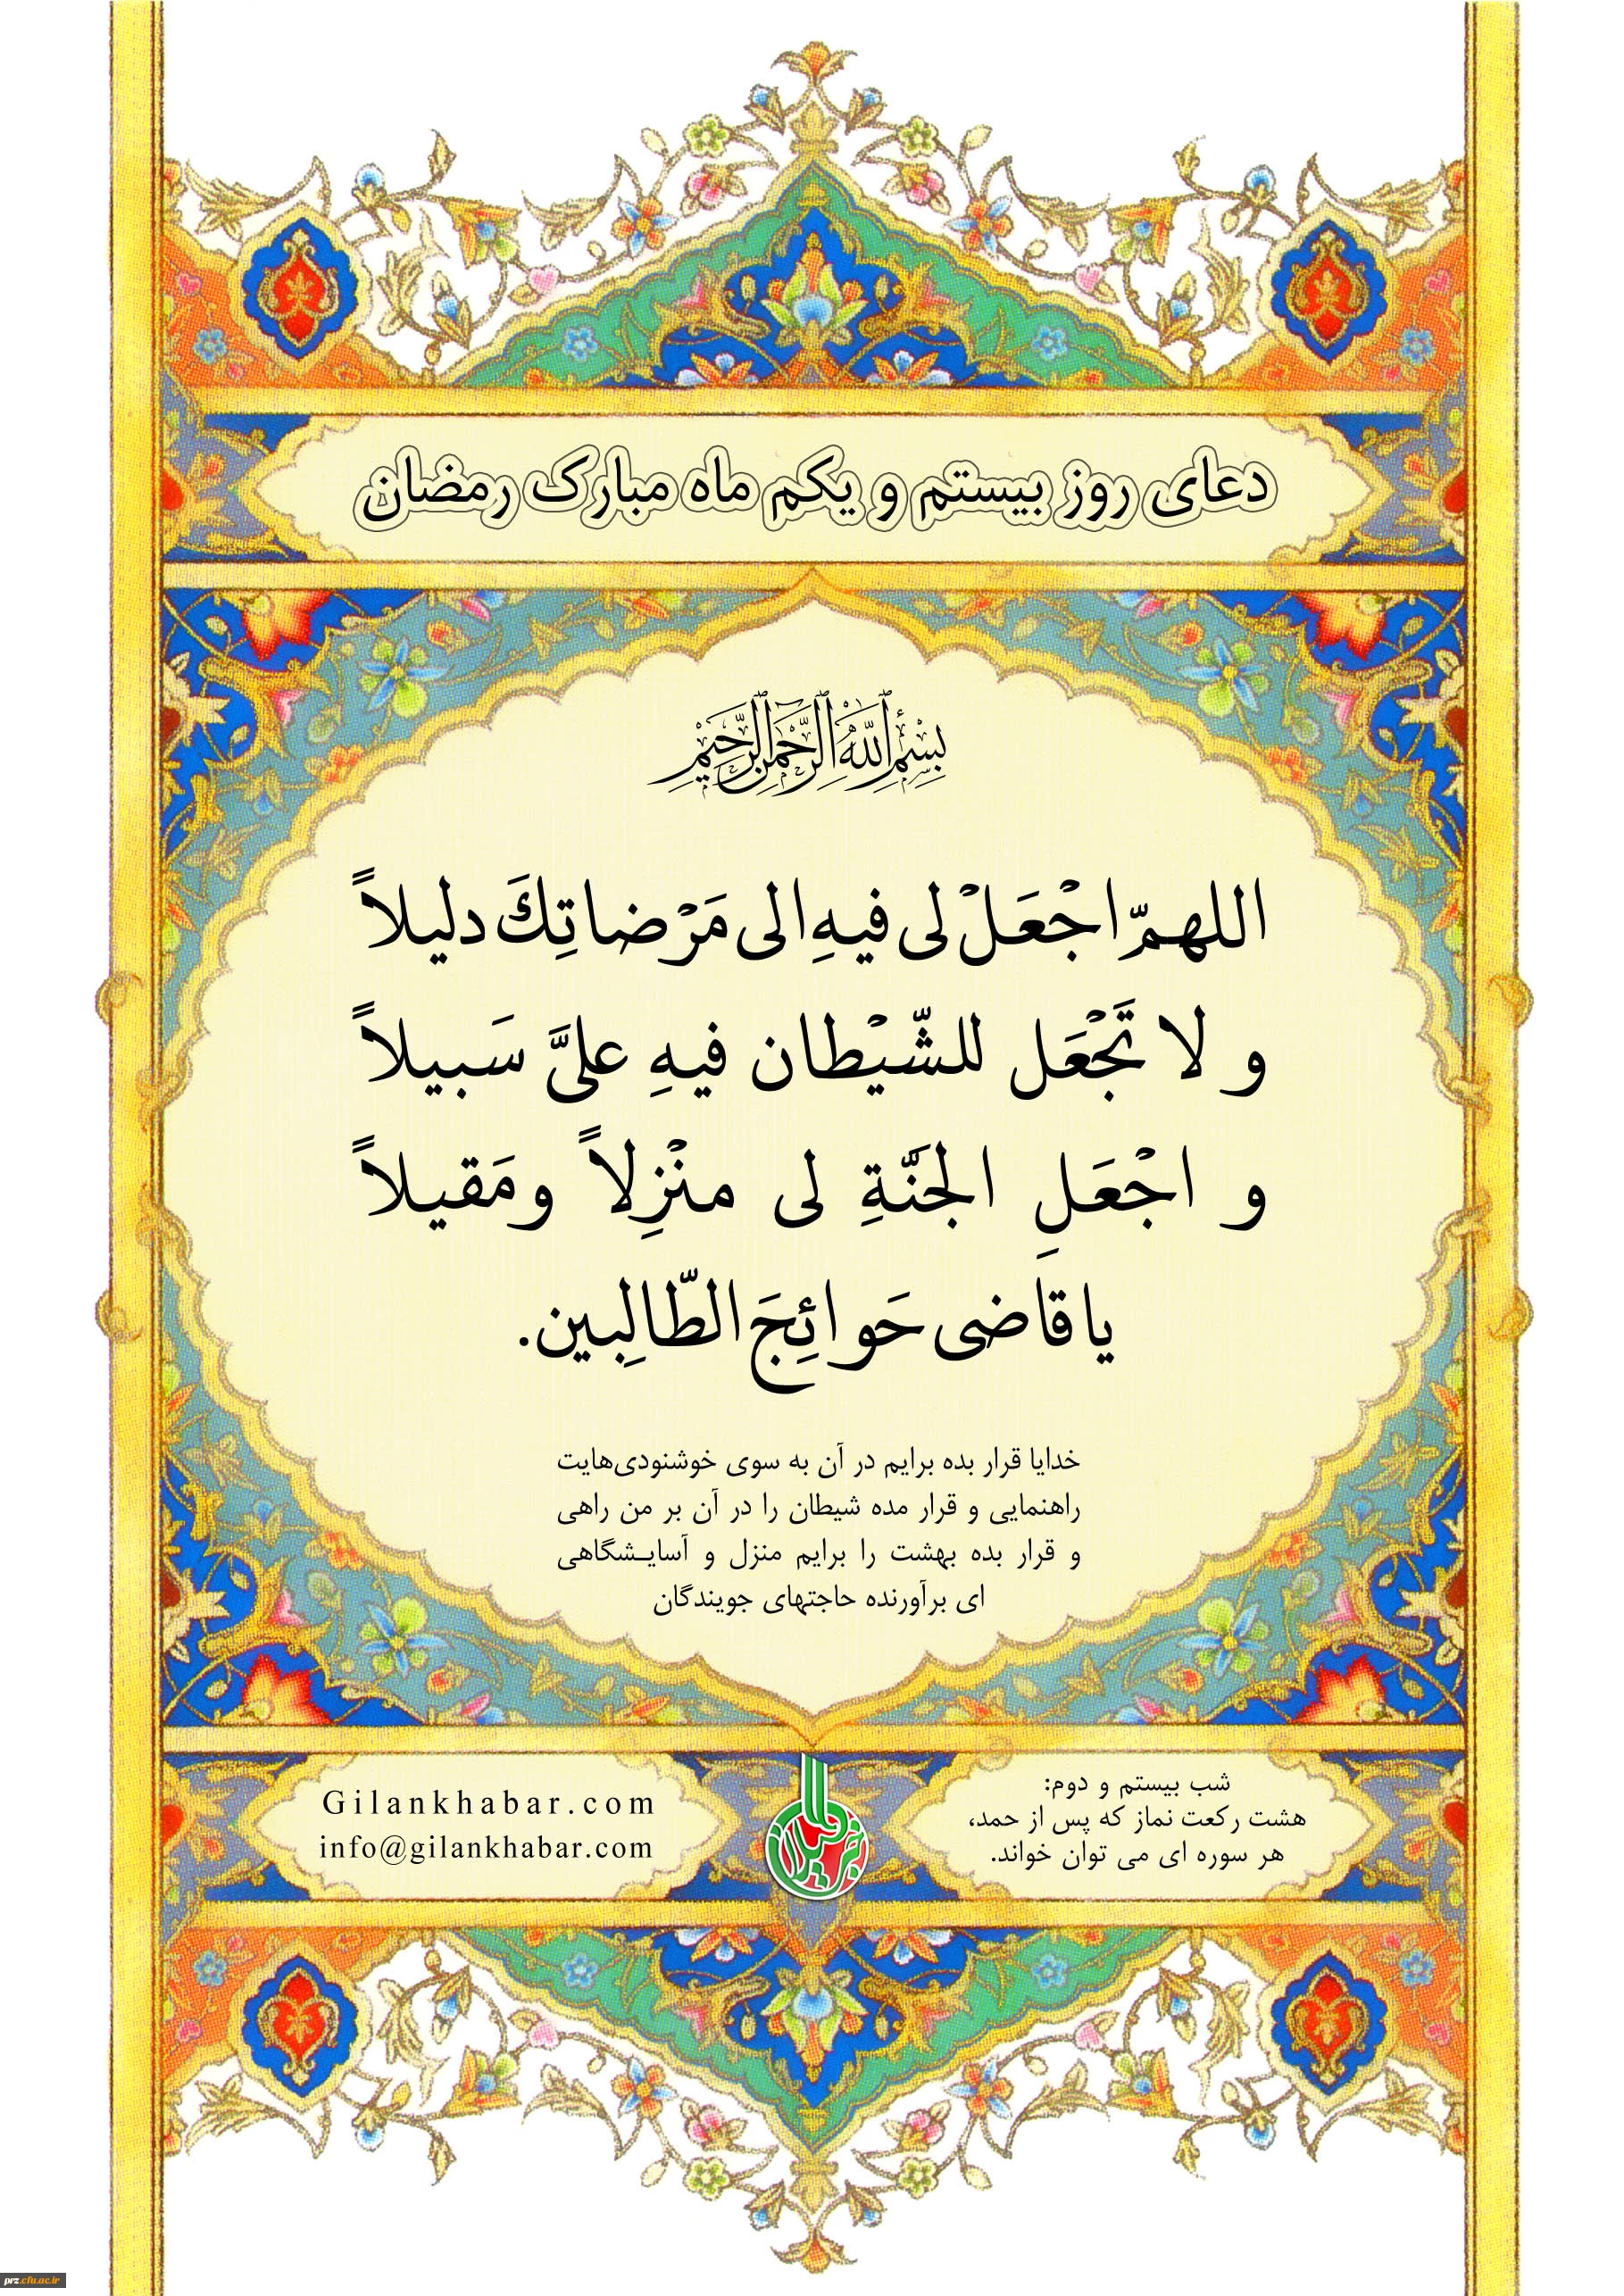 دعای روز بیستم و یکم ماه مبارک رمضان
بِسْمِ اللَّهِ الرَّحْمَنِ الرَّحِيمِ
اللهمّ اجْعَلْ لی فیهِ الی مَرْضاتِكَ دلیلاً
و لا تَجْعَل للشّیْطان فیهِ علیَّ سَبیلاً
و اجْعَلِ الجَنّةِ لی منْزِلاً ومَقیلاً
یا قاضی حَوائِجَ الطّالِبین.
خدایا قرار بده برایم در آن به سوی خوشنودی‌هایت
راهنمایی و قرار مده شیطان را در آن بر من راهی
و قرار بده بهشت را برایم منزل و آسایـشگاهی
ای برآورنده حاجتهای جویندگان
شب بیستم و دوم:
هشت رکعت نماز که پس از حمد،
هر سوره ای می توان خواند.
Gilankhabar.com
info@gilankhabar.com
خبر گیلان
prz.cfu.ac.ir